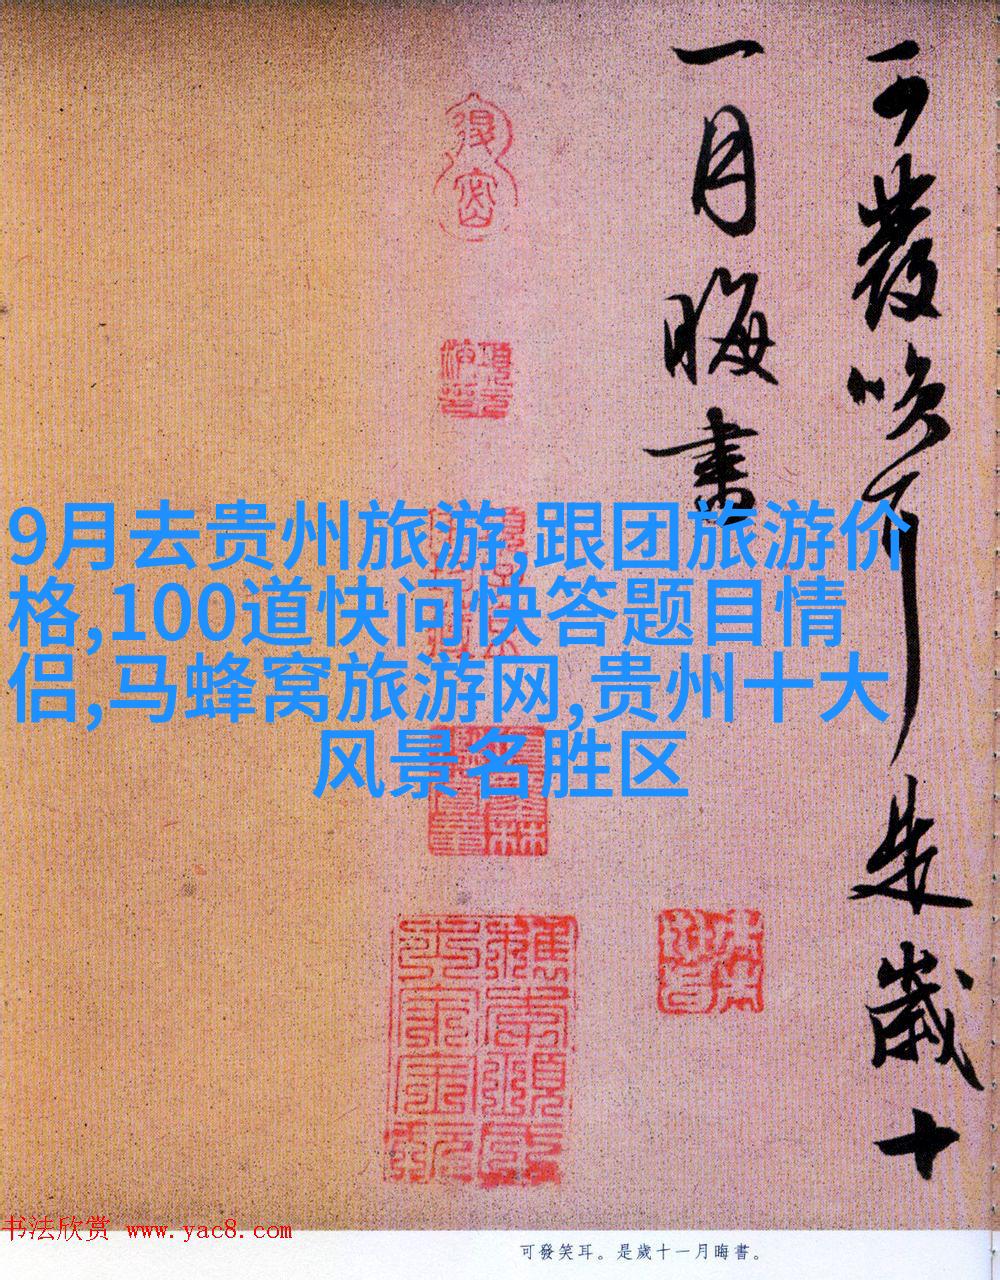 可發笑耳是歲十
一月晦書
9月去贵州旅游,跟团旅游价
格,100道快问快答题目情
侣,马蜂窝旅游网,贵州十大
风景名胜区
书法欣赏 www.yac8.com
可發笑耳。是歲十一月晦書。